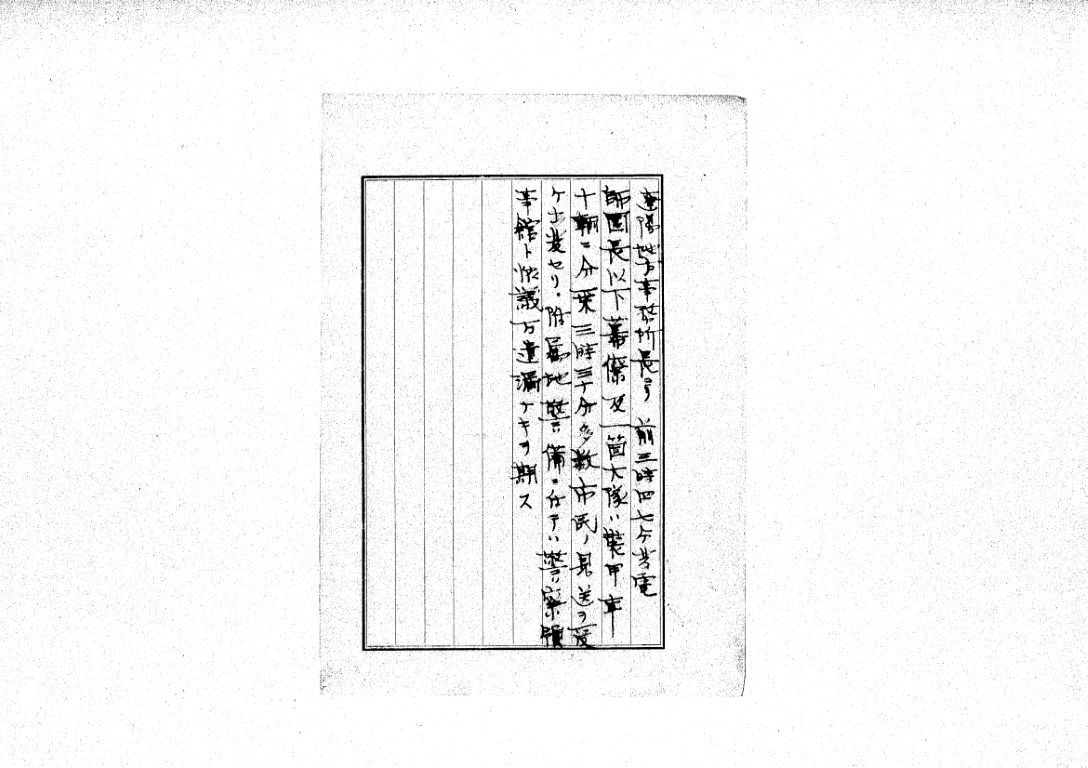 遼陽地方事務所長ヨリ 前三時四七分着電
師団長以下幕僚及一箇大隊ハ装甲車
十輌ニ分乗三時三十分多数市民ノ見送ヲ受
ケ出発セリ、附属地警備ニ付テハ警察領
事館ト協議万遺漏ナキヲ期ス